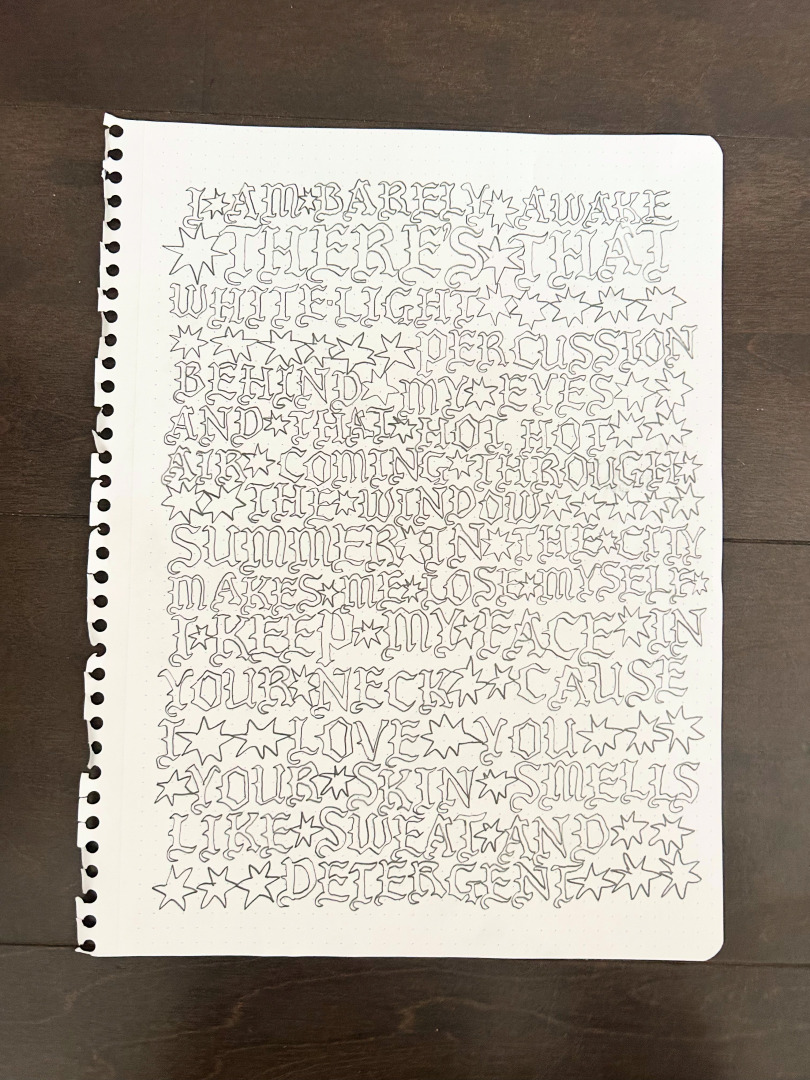 I AM BARELY AWAKE
THERE'S THAT
WHITE-LIGHT
PERCUSSION
BEHIND MY EYES
AND THAT HOT, HOT
AIR COMING THROUGH
THE WINDOW
SUMMER IN THE CITY
MAKES ME LOSE MYSELF
I KEEP MY FACE IN
YOUR NECK CAUSE
I LOVE YOU
YOUR SKIN SMELLS
LIKE SWEAT AND
DETERGENT